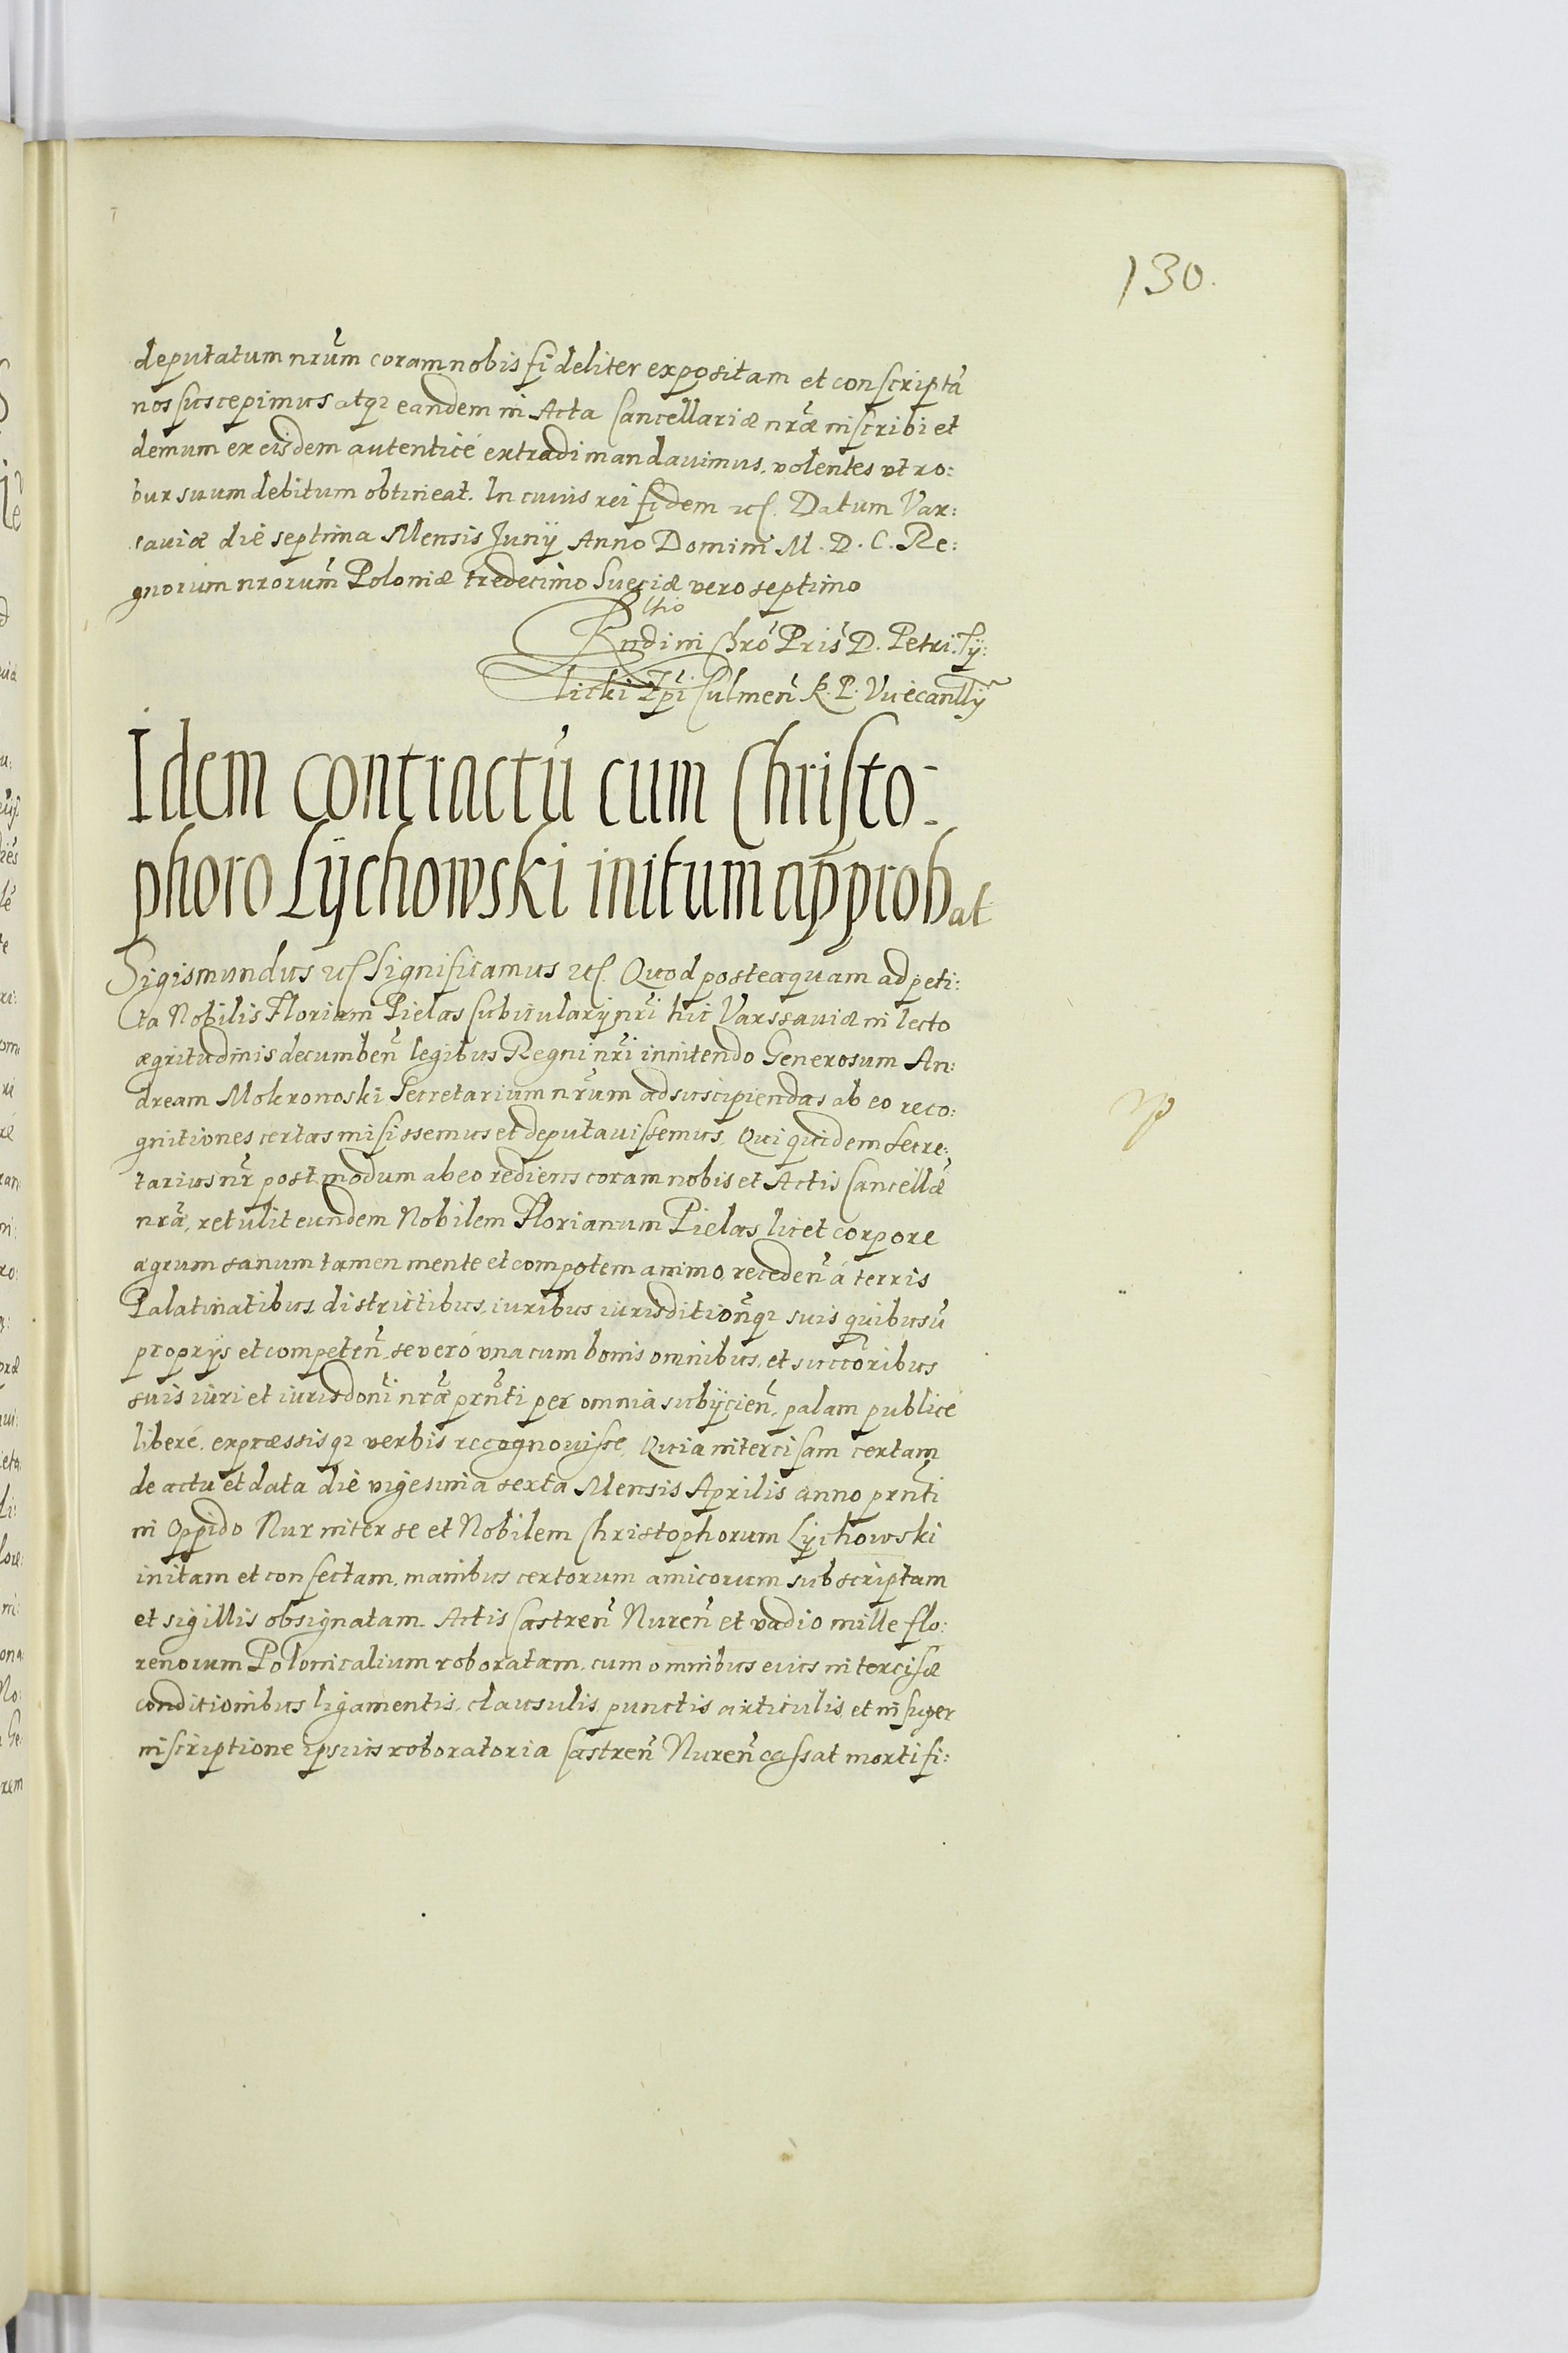 130.
deputatum nrũm coram nobis fideliter expositam et conscriptã
nos suscepimus atqз eandem in Acta Cancellariæ nrãe inscribi et
demum ex eisdem autenticé extradi mandauimus, volentes vt ro:
bur suum debitum obtineat. In cuius rei fidem etc. Datum Var:
sauiæ die septima Mensis Junij Anno Domini M. D. C. Re:
gnorum nrorum̃ Poloniæ tredecimo Sueciæ vero septimo
Rltio
Rndi in Chrõ Pris̃ D. Petri Ty:
licki Epĩ Culmen̄ R. P. Vicecanllÿ
Idem contractũ cum Christo-
phoro Lÿchowski initum approbat
Sigismundus etc Significamus etc. Quod posteaquam ad peti:
ta Nobilis Floriani Pielas Cubicularij nrĩ hic Varssauiæ in lecto
ægritudinis decumben̄ legibus Regni nrĩ innitendo Generosum An:
dream Mokronoski Secretarium nrũm ad suscipiendas ab eo reco:
gnitiones certas misissemus et deputauissemus. Qui quidem Secre:
tarius nr̃ postmodum ab eo rediens coram nobis et Actis Cancellæ̃
nrã, retulit eundem Nobilem Florianum Pielas licet corpore
ægrum sanum tamen mente et compotem animo, receden̄ á terris
Palatinatibus, districtibus, iuribus iurisdition̄qз suis quibusũ
proprijs et competen̄, se veró vna cum bonis omnibus, et succõribus
suis iuri et iurisdonĩ nrãe prñti per omnia subijcien̄, palam publicé
liberé, expræssisqз verbis recognouisse, Quia intercisam certam
de actu et data die vigesima sexta Mensis Aprilis anno prñti
in Oppido Nur inter se et Nobilem Christophorum Lÿchowski
initam et confectam, manibus certorum amicorum subscriptam
et sigillis obsignatam. Actis Castren̄ Nuren̄ et vadio mille flo:
renorum Polonicalium roboratam, cum omnibus eius intercisæ
conditionibus ligamentis, clausulis, punctis articulis, et insuper
inscriptione ipsius roboratoria Castren̄ Nuren̄ cassat mortifi: